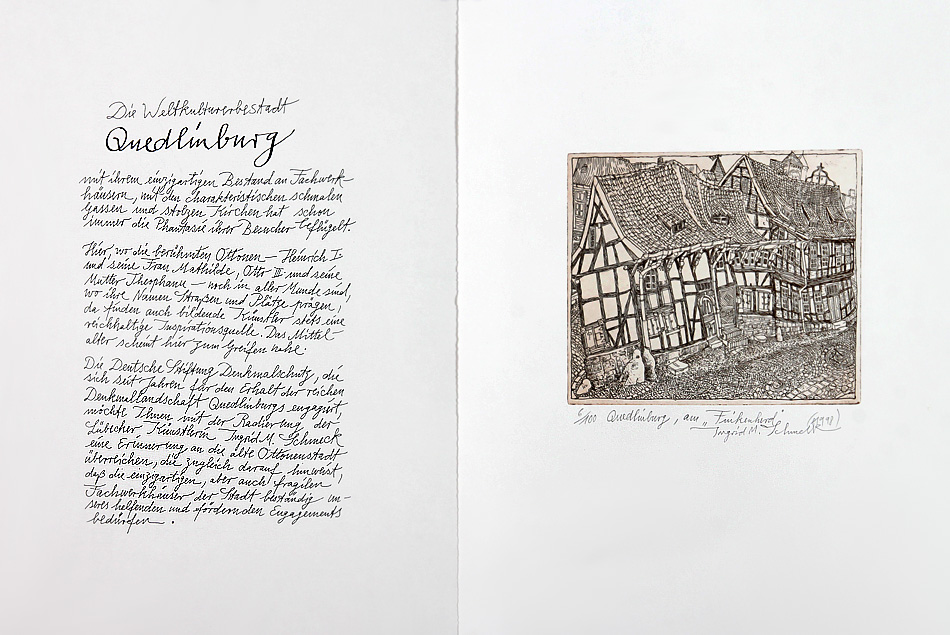 Die Weltkulturerbestadt
Quedlinburg
mit ihrem einzigartigen Bestand an Fachwerk-
häusern, mit den charakteristischen schmalen
Gassen und stolzen Kirchen hat schon
immer die Phantasie ihrer Besucher beflügelt.
Hier, wo die berühmten Ottonen – Heinrich I.
und seine Frau Mathilde, Otto III und seine
Mutter Theophanu – noch in aller Munde sind,
wo ihre Namen Straßen und Plätze prägen,
da finden auch bildende Künstler stets eine
reichhaltige Inspirationsquelle. Das Mittel-
alter scheint hier zum Greifen nahe.
Die Deutsche Stiftung Denkmalschutz, die
sich seit Jahren für den Erhalt der reichen
Denkmallandschaft Quedlinburgs engagiert,
möchte Ihnen mit der Radierung der
Lübecker Künstlerin Ingrid M. Schmeck
eine Erinnerung an die alte Ottonenstadt
überreichen, die zugleich darauf hinweist,
daß die einzigartigen, aber auch fragilen
Fachwerkhäuser der Stadt beständig un-
seres helfenden und fördernden Engagements
bedürfen.
/100 Quedlinburg, am „Finkenherd"
Ingrid M. Schmeck